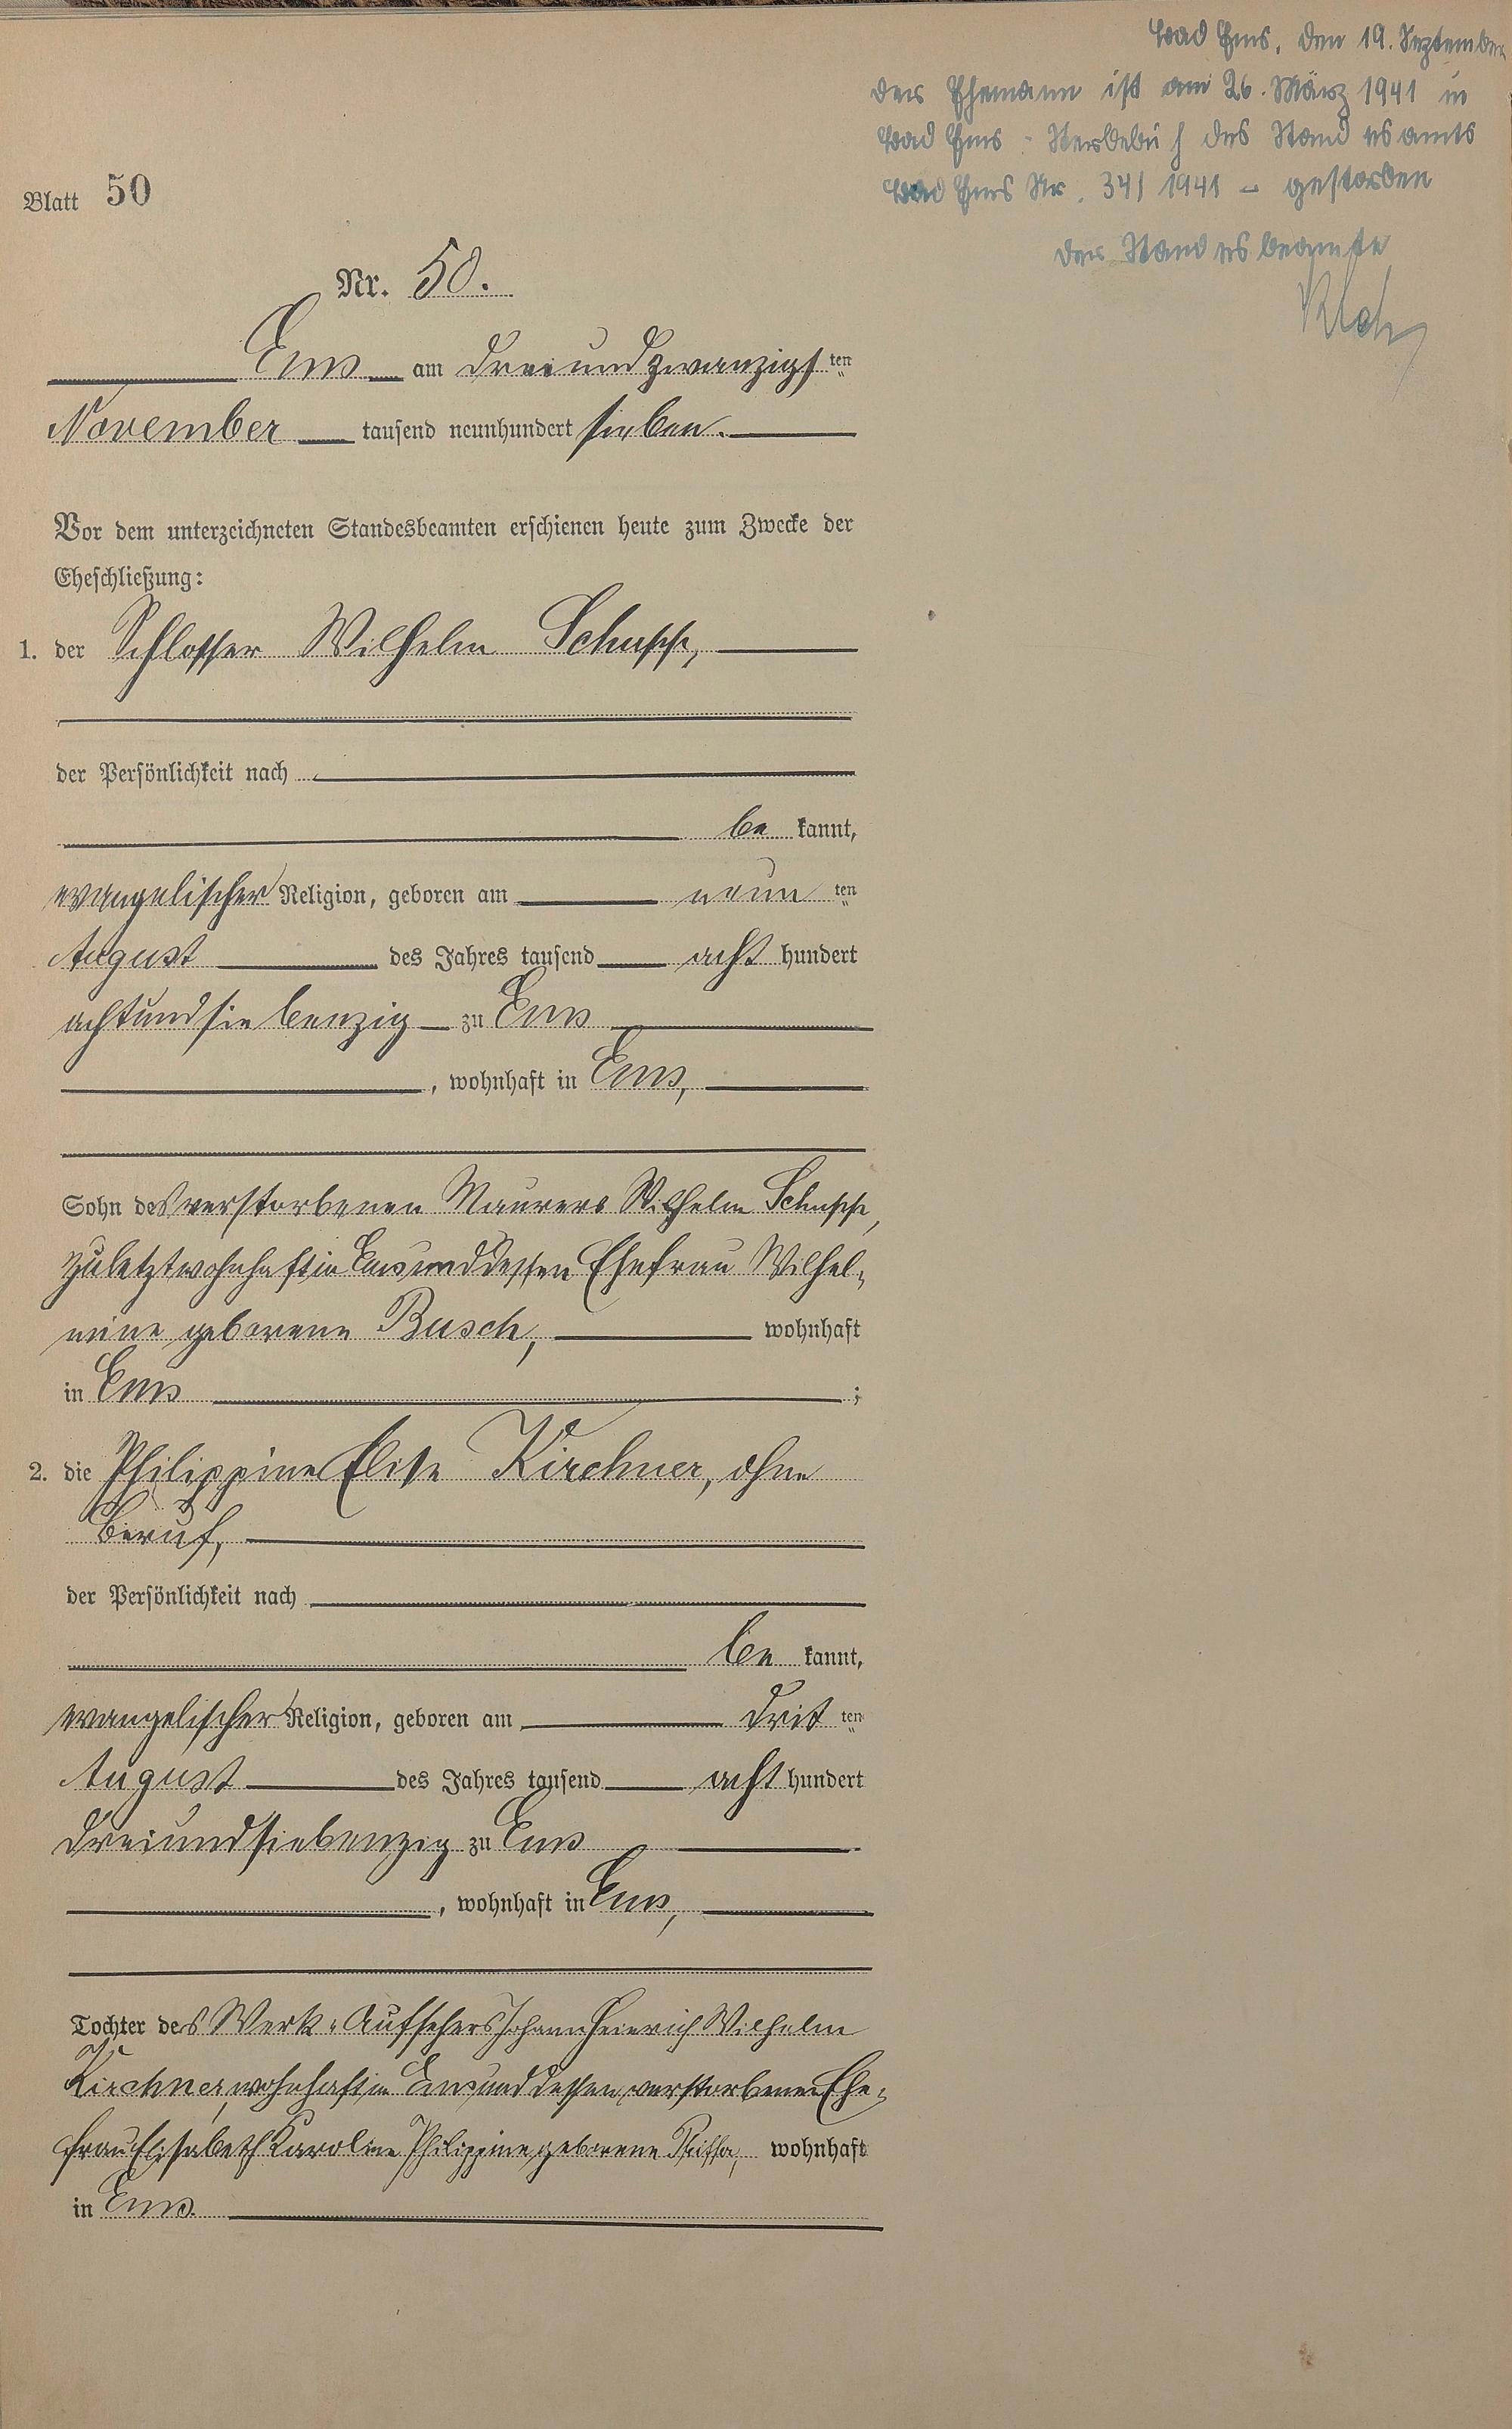 Bad Ems, den 19. September
Der Ehemann ist am 26. März 1941 in
Bad Ems - Sterbebuch des Standesamts
Bad Ems Nr. 34/1941 - gestorben
Der Standesbeamte
Blatt 50
Nr. 50.
Ems am dreiundzwanzigsten
November tausend neunhundert sieben.
Vor dem unterzeichneten Standesbeamten erschienen heute zum Zwecke der
Eheschließung:
1. der Schlosser Wilhelm Schupp,
der Persönlichkeit nach
be kannt,
evangelischer Religion, geboren am neun ten
August des Jahres tausend acht hundert
achtundsiebenzig zu Ems
, wohnhaft in Ems,
Sohn des verstorbenen Maurers Wilhelm Schupp,
zuletzt wohnhaft in Ems und dessen Ehefrau Wilhel-
mine geborene Busch, wohnhaft
in Ems ;
2. die Philippine Elise Kirchner, ohne
Beruf,
der Persönlichkeit nach
be kannt,
evangelischer Religion, geboren am drit ten
August des Jahres tausend acht hundert
dreiundsiebenzig zu Ems
, wohnhaft in Ems,
Tochter des Werk-Aufsehers Johann Heinrich Wilhelm
Kirchner, wohnhaft in Ems und dessen verstorbenen Ehe-
frau Elisabeth Karoline Philippine geborene wohnhaft
in Ems.